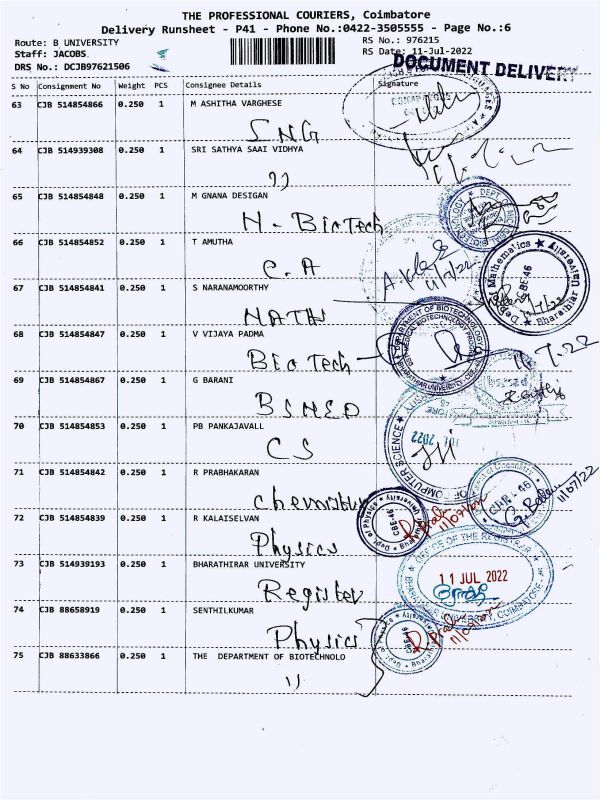 THE PROFESSIONAL COURIERS, Coimbatore
Delivery Runsheet - P41 - Phone No.:0422-3505555 - Page No.:6
Route: B UNIVERSITY
RS No.: 976215
Staff: JACOBS
RS Date: 11-Jul-2022
DRS No.: DCJB97621506
DOCUMENT DELIVERY
S No Consignment No Weight PCS Consignee Details Signature
63 CJB 514854866 0.250 1 M ASHITHA VARGHESE
SNG
64 CJB 514939308 0.250 1 SRI SATHYA SAAI VIDHYA
65 CJB 514854848 0.250 1 M GNANA DESIGAN
N. BioTech
66 CJB 514854852 0.250 1 T AMUTHA
C.A
11/7/22
67 CJB 514854841 0.250 1 S NARANAMOORTHY
MATH
Dept. of Mathematics ★ Bharathiar University ★
CBE 46
68 CJB 514854847 0.250 1 V VIJAYA PADMA
BioTech
DEPARTMENT OF BIOTECHNOLOGY
11.7.22
69 CJB 514854867 0.250 1 G BARANI
BSMED
70 CJB 514854853 0.250 1 PB PANKAJAVALL
CS
COMPUTER SCIENCE
JUL 2022
71 CJB 514854842 0.250 1 R PRABHAKARAN
Chemistry
11/07/22
72 CJB 514854839 0.250 1 R KALAISELVAN
Physics
Dept of Physics ★ Bharathiar University
CBE46
11/07/2022
73 CJB 514939193 0.250 1 BHARATHIRAR UNIVERSITY
Register
OFFICE OF THE REGISTRAR
BHARATHIAR UNIVERSITY, COIMBATORE
11 JUL 2022
74 CJB 88658919 0.250 1 SENTHILKUMAR
Physics
11/07/2022
75 CJB 88633866 0.250 1 THE DEPARTMENT OF BIOTECHNOLO